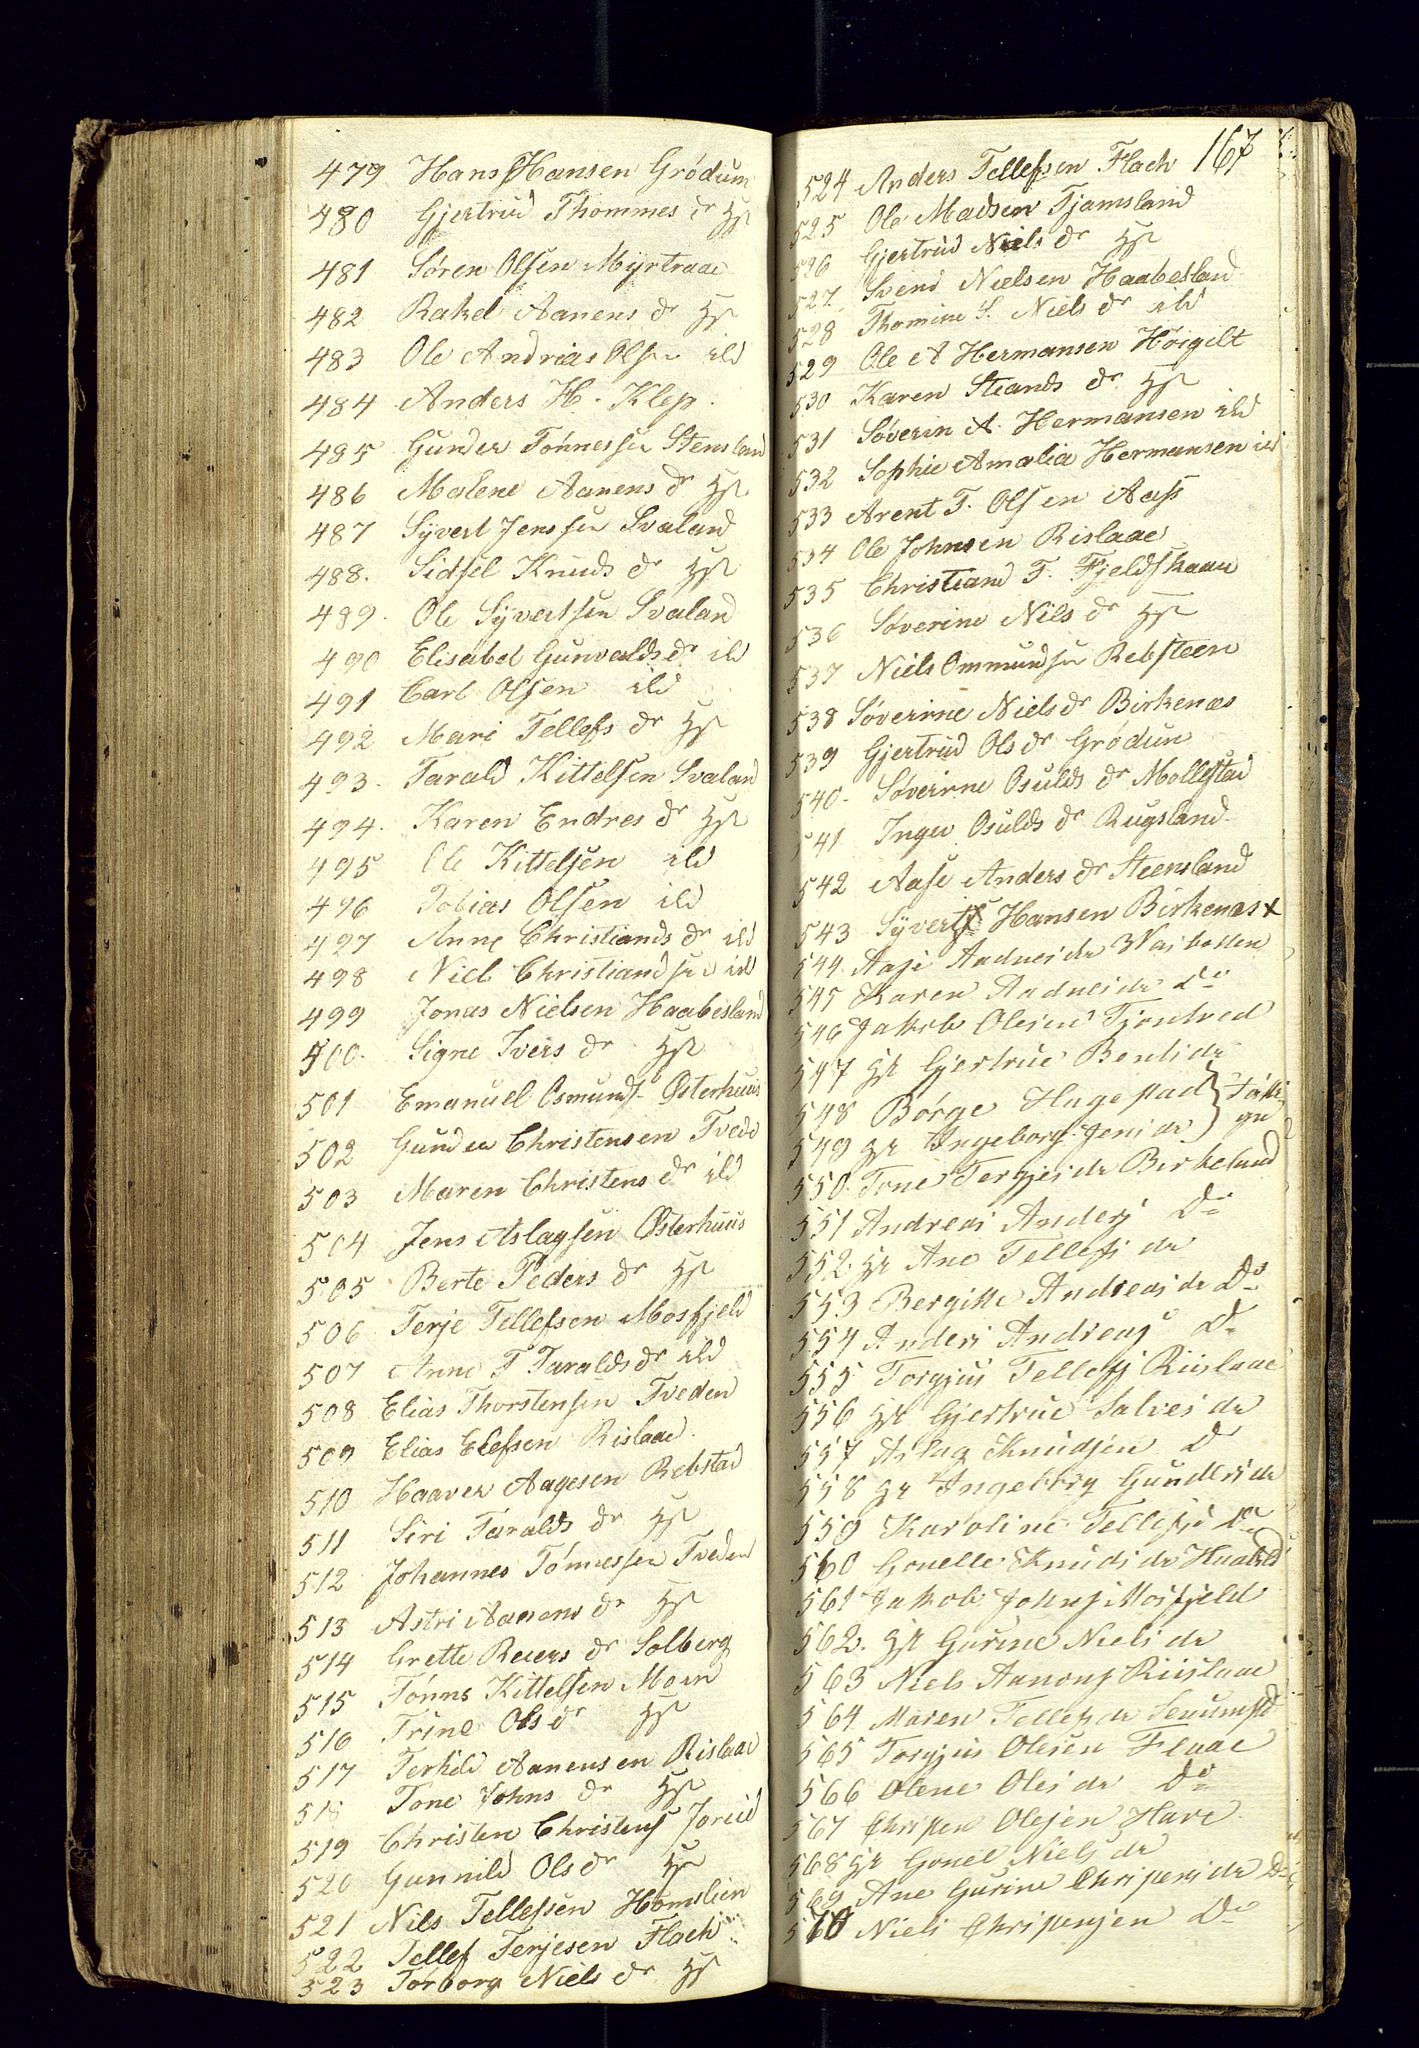 479 Hans Hansen Grødum
480 Gjertrud Thommes dr Hst
481 Søren Olsen Myrtraae
482 Rakel Aanens dr Hst
483 Ole Andrias Olsen ild
484 Anders H. Klep.
485 Gunder Tønnessen Stensland
486 Malene Aanens dr Hst
487 Syvert Jenssen Svaland
488. Sidsel Knuds dr Hst
489. Ole Syvertsen Svaland
490 Elisabet Gunvalds dr ild
491 Carl Olsen ild
492 Mari Tellefs dr Hst
493. Tarald Kittelsen Svaland
494. Karen Endres dr Hst
495 Ole Kittelsen ild
496 Tobias Olsen ild
497 Anne Christiands dr ild
498 Niels Christiandsen ild
499 Jonas Nielsen Haabesland
500. Signe Ivers dr Hst
501 Emanuel Osmunds Østerhuus
502 Gunder Christensen Tvede
503 Maren Christens dr ild
504 Jens Aslagsen Østerhuus
505 Berte Peders dr Hst
506 Terje Tellefsen Mosfjeld
507 Anne T Taralds dr ild
508 Elias Thorstensen Tveden
509 Elias Elefsen Rislaae
510 Haaver Aagesen Rebstad
511 Siri Taralds dr Hst
512 Johannes Tønnessen Tveden
513 Astri Aanons dr Hst
514 Grette Reiers dr Solberg
515 Tønns Kittelsen Moen
516 Trine Ols dr Hst
517 Terkild Aanensen Rislaae
518 Tone Johns dr Hst
519 Christen Christens
520 Gunnild Ols dr Hst
521 Nils Tellefsen Homslien
522 Tellef Terjesen Flach
523 Torborg Niels dr Hst
167
524 Anders Tellefsen Flach
525 Ole Madsen Tjamsland
526 Gjertrud Niels dr Hst
527. Svend Nielsen Haabesland
528 Thomine S. Niels dr ild
529 Ole A Hermansen Høigilt
530 Karen Steands dr Hst
531 Søveren A. Hermansen ild
532 Sophie Amalia Hermansen ild
533 Arent T. Olsen Aass
534 Ole Johnsen Rislaae
535 Christiand T. Fjeldskaaer
536 Søverine Nils dr Hst
537 Niels Ommundsen Rebsteen
538 Søverine Niels dr Birkenæs
539 Gjertrud Ols dr Grødum
540. Søverine Osulds dr Mollestad
541 Inger Osulds dr Rugsland
542 Aase Anders dr Steensland
543 Syvert Hansen Birkenæs x
544 Aase Aadnes dr
545 Karen Aadnes dr Do
546 Jakob Olesen Tjontved
547 Hst Gjertrue Bents dr
548 Børge Hagestad
549 Hr Ingeborg Jens dr
550. Tone Tergjes dr Birkeland
551 Andreas Anders Do
552. Hr Ane Tellefs dr
553 Bergitte Andreas dr Do
554 Anders Andreas Do
555 Torgjus Tellefs Riislaae
556 Hst Gjertrue Salves dr
557 Aslag Knudsen Do
558 Hr Ingeborg Gundles dr
559 Karoline Tellefs d Do
560 Gonelle Knuds dr
561 Jakob Johns Mosfjeld
562. Hst Gurine Niels dr
563 Niels Aanons Riislaae
564 Maren Tellefs dr
565 Torgjus Olesen Flaae
566 Olene Oles dr Do
567 Christen Olesen Have
568 Hr Gonel Niels dr
569 Ane Gurine Christens dr Do
570 Niels Christensen Do